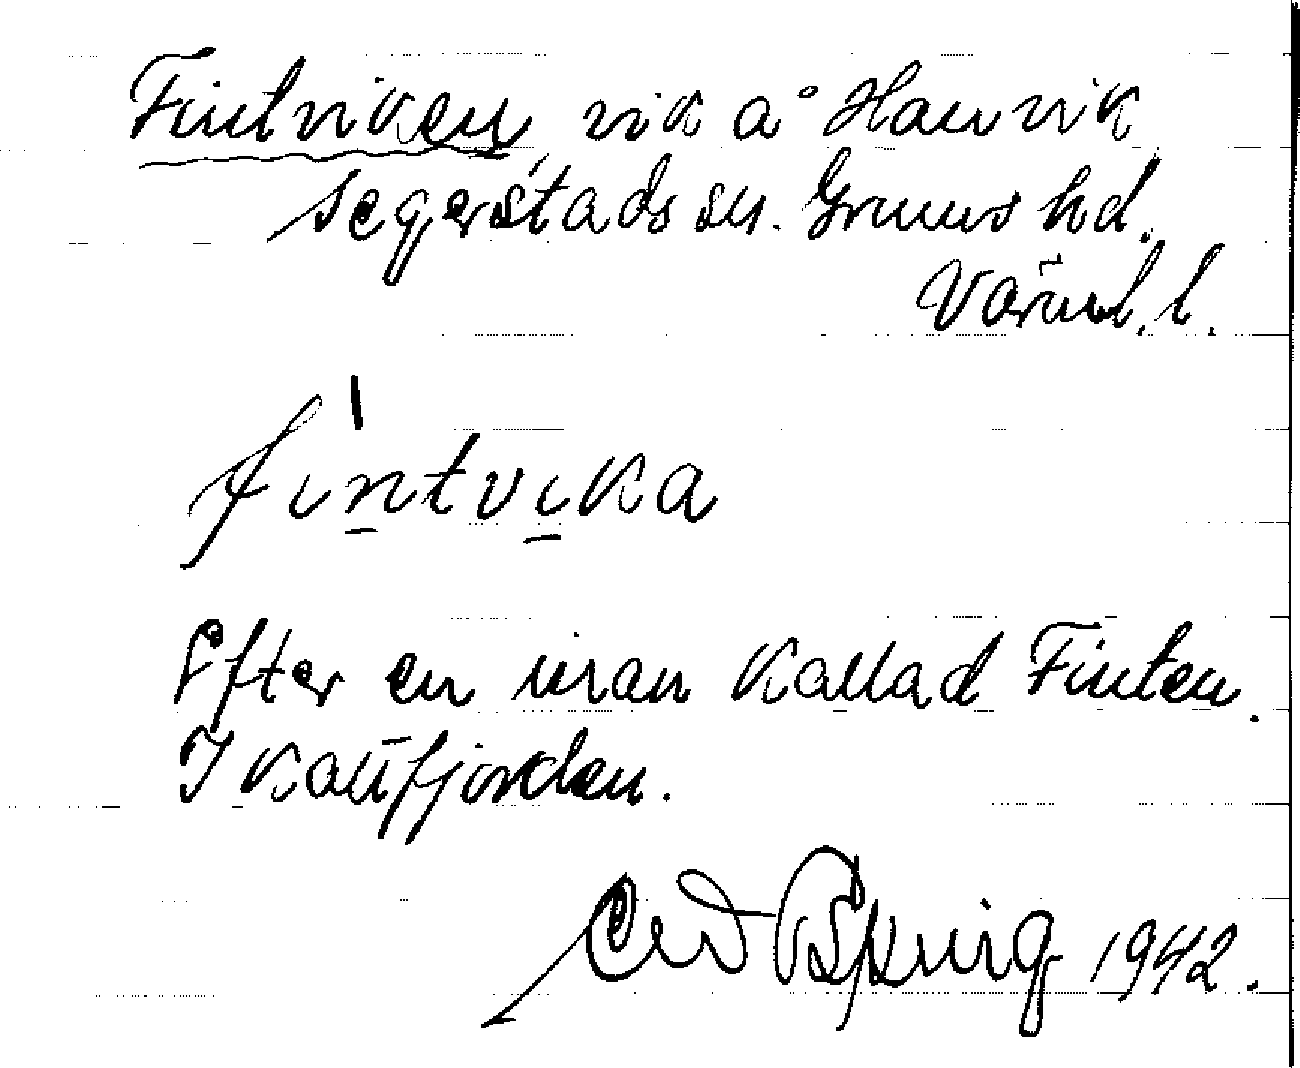 Fintviken, vik å Hanvik
Segerstads sn. Grums hd.
Värml. l.
fintvika
Efter en man kallad Finten.
I Kattfjorden.
1942.